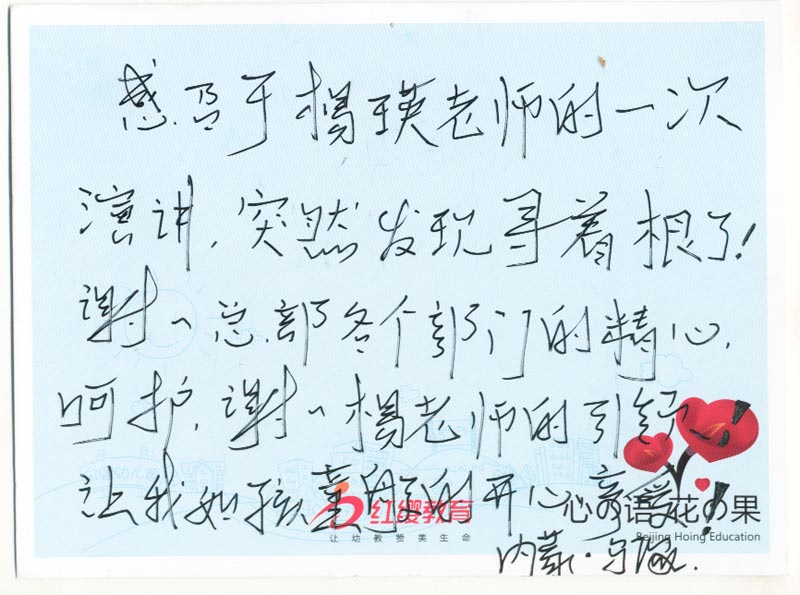 感召于杨瑛老师的一次
演讲，突然发现寻着根了！
谢〻总部各个部门的精心
呵护，谢〻杨老师的引领！
让我如孩童般的开心
红缨教育
心の语 花の果
让幼教赞美生命
Beijing Hoing Education
内蒙·